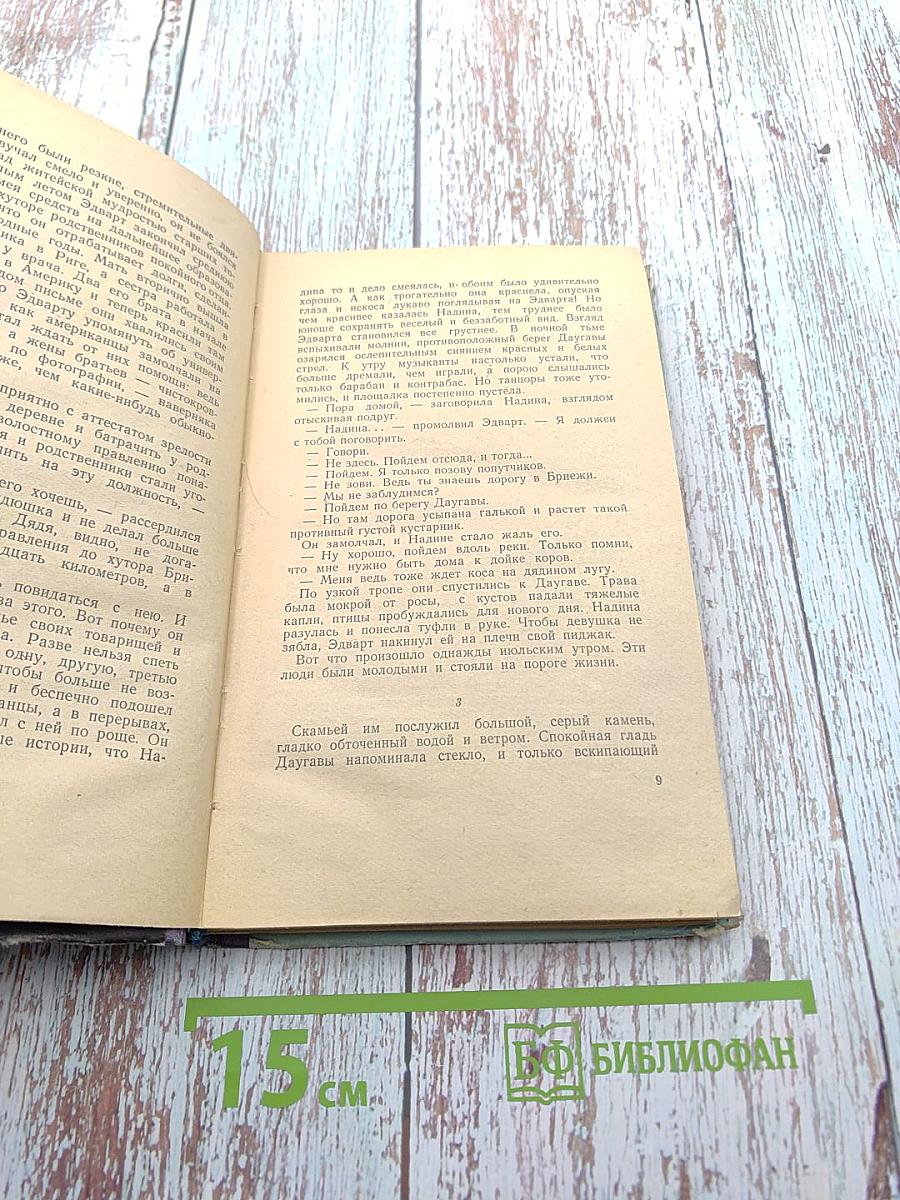 него были резкие, стремительные дви-
звучал смело и уверенно, он не боялся
житейской мудростью старших то-
летом Эдварт закончил среднюю
средств на дальнейшее образова-
хуторе родственников покойного отца
что он отрабатывает долги, сделан-
годные годы. Мать вторично вышла
в Риге, а сестра работала
у врача. Два его брата в начале
в Америку и теперь красили там
письме они хвалились своим
Эдварту упомянуть об универ-
как американцы замолчали на
ждать от них помощи: ведь
а жены братьев — чистокров-
по фотографии, — наверняка
чем какие-нибудь обыкно-
приятно с аттестатом зрелости
деревне и батрачить у род-
волостному правлению пона-
и родственники стали уго-
на эту должность, —
его хочешь, — рассердился
дядюшка и не делал больше
Дядя, видно, не дога-
правления до хутора Бри-
дцать километров, а в
повидаться с нею. И
за этого. Вот почему он
своих товарищей и
Разве нельзя спеть
одну, другую, третью
чтобы больше не воз-
и беспечно подошел
танцы, а в перерывах,
с ней по роще. Он
истории, что На-
дина то и дело смеялась, и обоим было удивительно
хорошо. А как трогательно она краснела, опуская
глаза и искоса лукаво поглядывая на Эдварта! Но
чем красивее казалась Надина, тем труднее было
юноше сохранять веселый и беззаботный вид. Взгляд
Эдварта становился все грустнее. В ночной тьме
вспыхивали молнии, противоположный берег Даугавы
озарялся ослепительным сиянием красных и белых
стрел. К утру музыканты настолько устали, что
больше дремали, чем играли, а порою слышались
только барабан и контрабас. Но танцоры тоже уто-
мились, и площадка постепенно пустела.
— Пора домой, — заговорила Надина, взглядом
отыскивая подруг.
— Надина... — промолвил Эдварт. — Я должен
с тобой поговорить.
— Говори.
— Не здесь. Пойдем отсюда, и тогда...
— Пойдем. Я только позову попутчиков.
— Не зови. Ведь ты знаешь дорогу в Бриежи.
— Мы не заблудимся?
— Пойдем по берегу Даугавы.
— Но там дорога усыпана галькой и растет такой
противный густой кустарник.
Он замолчал, и Надине стало жаль его.
— Ну хорошо, пойдем вдоль реки. Только помни,
что мне нужно быть дома к дойке коров.
— Меня ведь тоже ждет коса на дядином лугу.
По узкой тропе они спустились к Даугаве. Трава
была мокрой от росы, с кустов падали тяжелые
капли, птицы пробуждались для нового дня. Надина
разулась и понесла туфли в руке. Чтобы девушка не
зябла, Эдварт накинул ей на плечи свой пиджак.
Вот что произошло однажды июльским утром. Эти
люди были молодыми и стояли на пороге жизни.
3
Скамьей им послужил большой, серый камень,
гладко обточенный водой и ветром. Спокойная гладь
Даугавы напоминала стекло, и только вскипающий
9
15 см
БФ БИБЛИОФАН